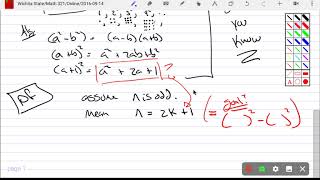 Wichita State/Math 321/Online/2016-09-14
(a²-b²) = (a-b)(a+b)
(a+b)² = a²+2ab+b²
(a+1)² = a²+2a+1 ?
you
know
pf
assume n is odd.
mean n = 2k+1
goal?
( = ( )² - ( )² )
page 7